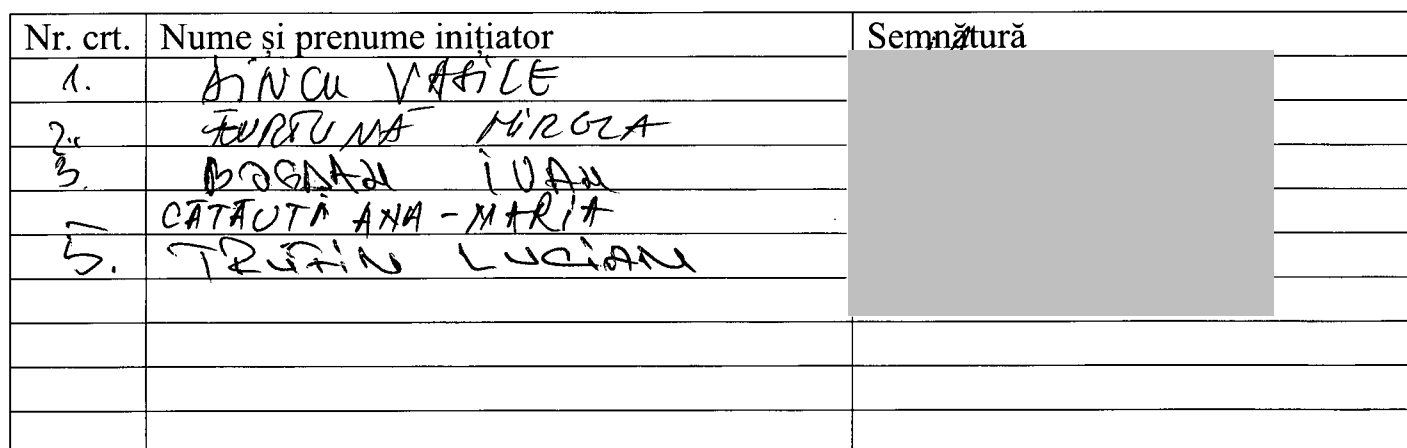 Nr. crt. Nume și prenume inițiator Semnătură
1. DÎNCU VASILE
2. FURTUNĂ MIRCEA
3. BOGDAN IVAN
CĂTĂUȚĂ ANA-MARIA
5. TRUFIN LUCIAN